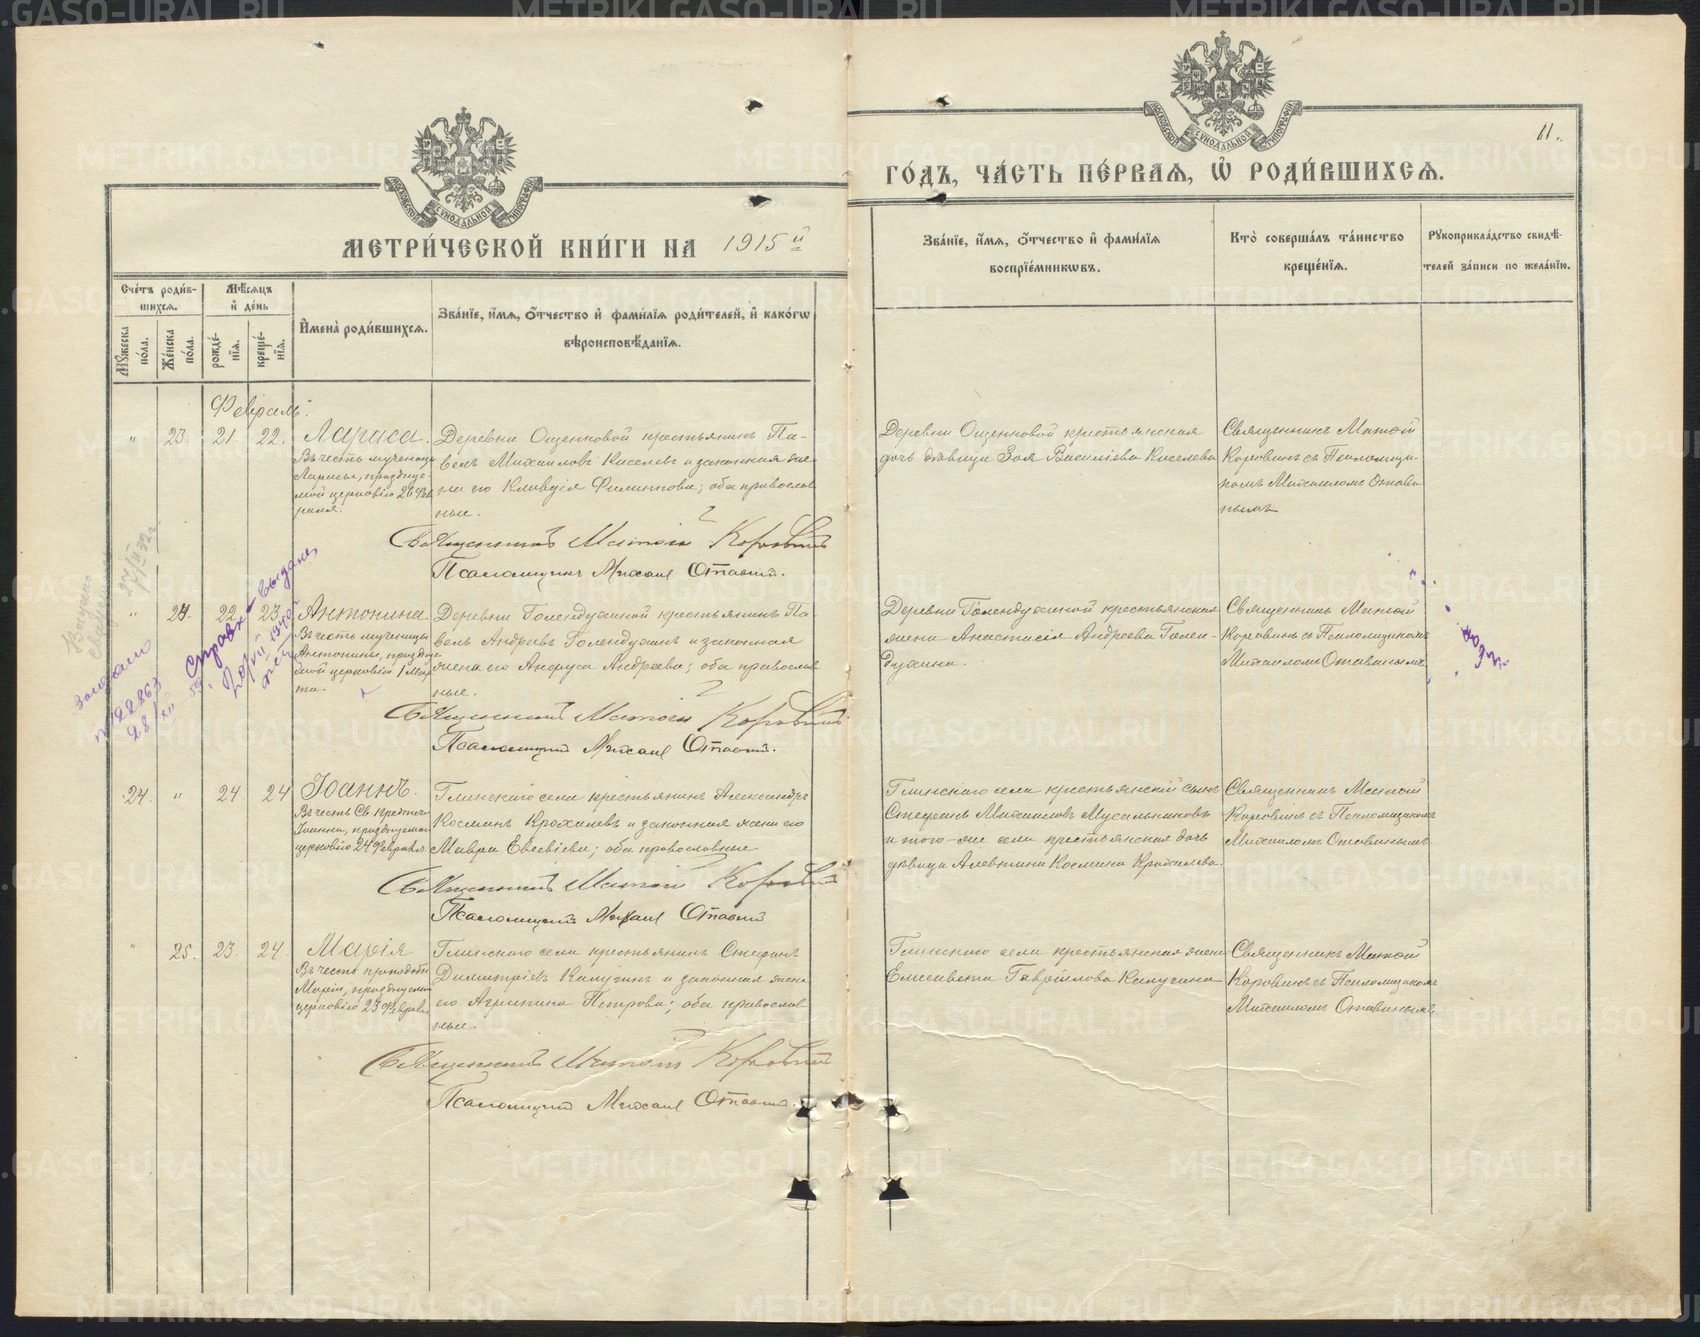 МЕТРИ́ЧЕСКОЙ КНИ́ГИ НА 1915 й
ГО́ДЪ, ЧА́СТЬ ПЕ́РВАѦ, Ѡ҆ РОДИ́ВШИХСѦ.
11.
Сче́тъ роди́в-
шихсѧ.
Мꙋжеска по́ла.
Же́нска по́ла.
Мѣ́сѧцъ
и҆ де́нь
рожде́-
нїѧ.
креще́-
нїѧ.
И҆мена̀ роди́вшихсѧ.
Зва́нїе, и҆́мѧ, ѻ҆́тчество и҆ фами́лїѧ роди́телей, и҆ како́гѡ
вѣроисповѣ́данїѧ.
Зва́нїе, и҆́мѧ, ѻ҆́тчество и҆ фами́лїѧ
воспрїе́мникѡвъ.
Кто̀ соверша́лъ та́инство
креще́нїѧ.
Рꙋкоприкла́дство свидѣ́-
телей за́писи по жела́нїю.
Февраль.
" 23. 21 22.
Лариса.
Въ честь мученицы
Ларисы, празднуе-
мой церковію 26 Фев
раля.
Деревни Ощепковой крестьянинъ Па-
велъ Михаиловъ Киселевъ и законная же-
на его Клавдія Филиппова; оба православ
ные.
Священникъ Матѳій Коровинъ
Псаломщикъ Михаил Отавин.
Деревни Ощепковой крестьянская
дочь дѣвица Зоя Василіева Киселева
Священникъ Матѳій
Коровинъ съ Псаломщи-
комъ Михаиломъ Отави
нымъ
" 24. 22 23.
Антонина.
Въ честь мученицы
Антонины, праздну
емой церковію 1 Мар
та.
Деревни Голендухиной крестьянинъ Па
велъ Андреевъ Голендухинъ и законная
жена его Андреева; оба православ
ные.
Священникъ Матѳій Коровинъ
Псаломщикъ Михаил Отавин.
Деревни Голендухиной крестьянская
жена Анастасія Андреева Голен-
духина.
Священникъ Матѳій
Коровинъ съ Псаломщикомъ
Михаиломъ Отавинымъ.
24. " 24 24
Іоаннъ.
Въ честь Св. Крестителя
Іоанна, празднуемаго
церковію 24 Февраля.
Глинскаго села крестьянинъ Александръ
Косминъ Крохалевъ и законная жена его
Мавра Евсевіева; оба православные.
Священникъ Матѳій Коровинъ
Псаломщикъ Михаил Отавин
Глинскаго села крестьянскій сынъ
Стефанъ Михаиловъ Мусальниковъ
и того-же села крестьянская дочь
дѣвица Алевтина Космина Крохалева.
Священникъ Матѳій
Коровинъ съ Псаломщикомъ
Михаиломъ Отавинымъ.
" 25. 23. 24.
Марія
Въ честь преподобн
Маріи, празднуемой
церковію 23 Февраля.
Глинскаго села крестьянинъ Стефанъ
Димитріевъ Калугинъ и законная жена
его Агрипина Петрова; оба православ
ные.
Священникъ Матѳій Коровинъ
Псаломщикъ Михаил Отавин.
Глинскаго села крестьянская жена
Елисавета Гавріилова Калугина
Священникъ Матѳій
Коровинъ съ Псаломщикомъ
Михаиломъ Отавинымъ.
Справка выдана
1940 г
№ 22863
28/XII
27/II 32 г
METRIKI.GASO-URAL.RU